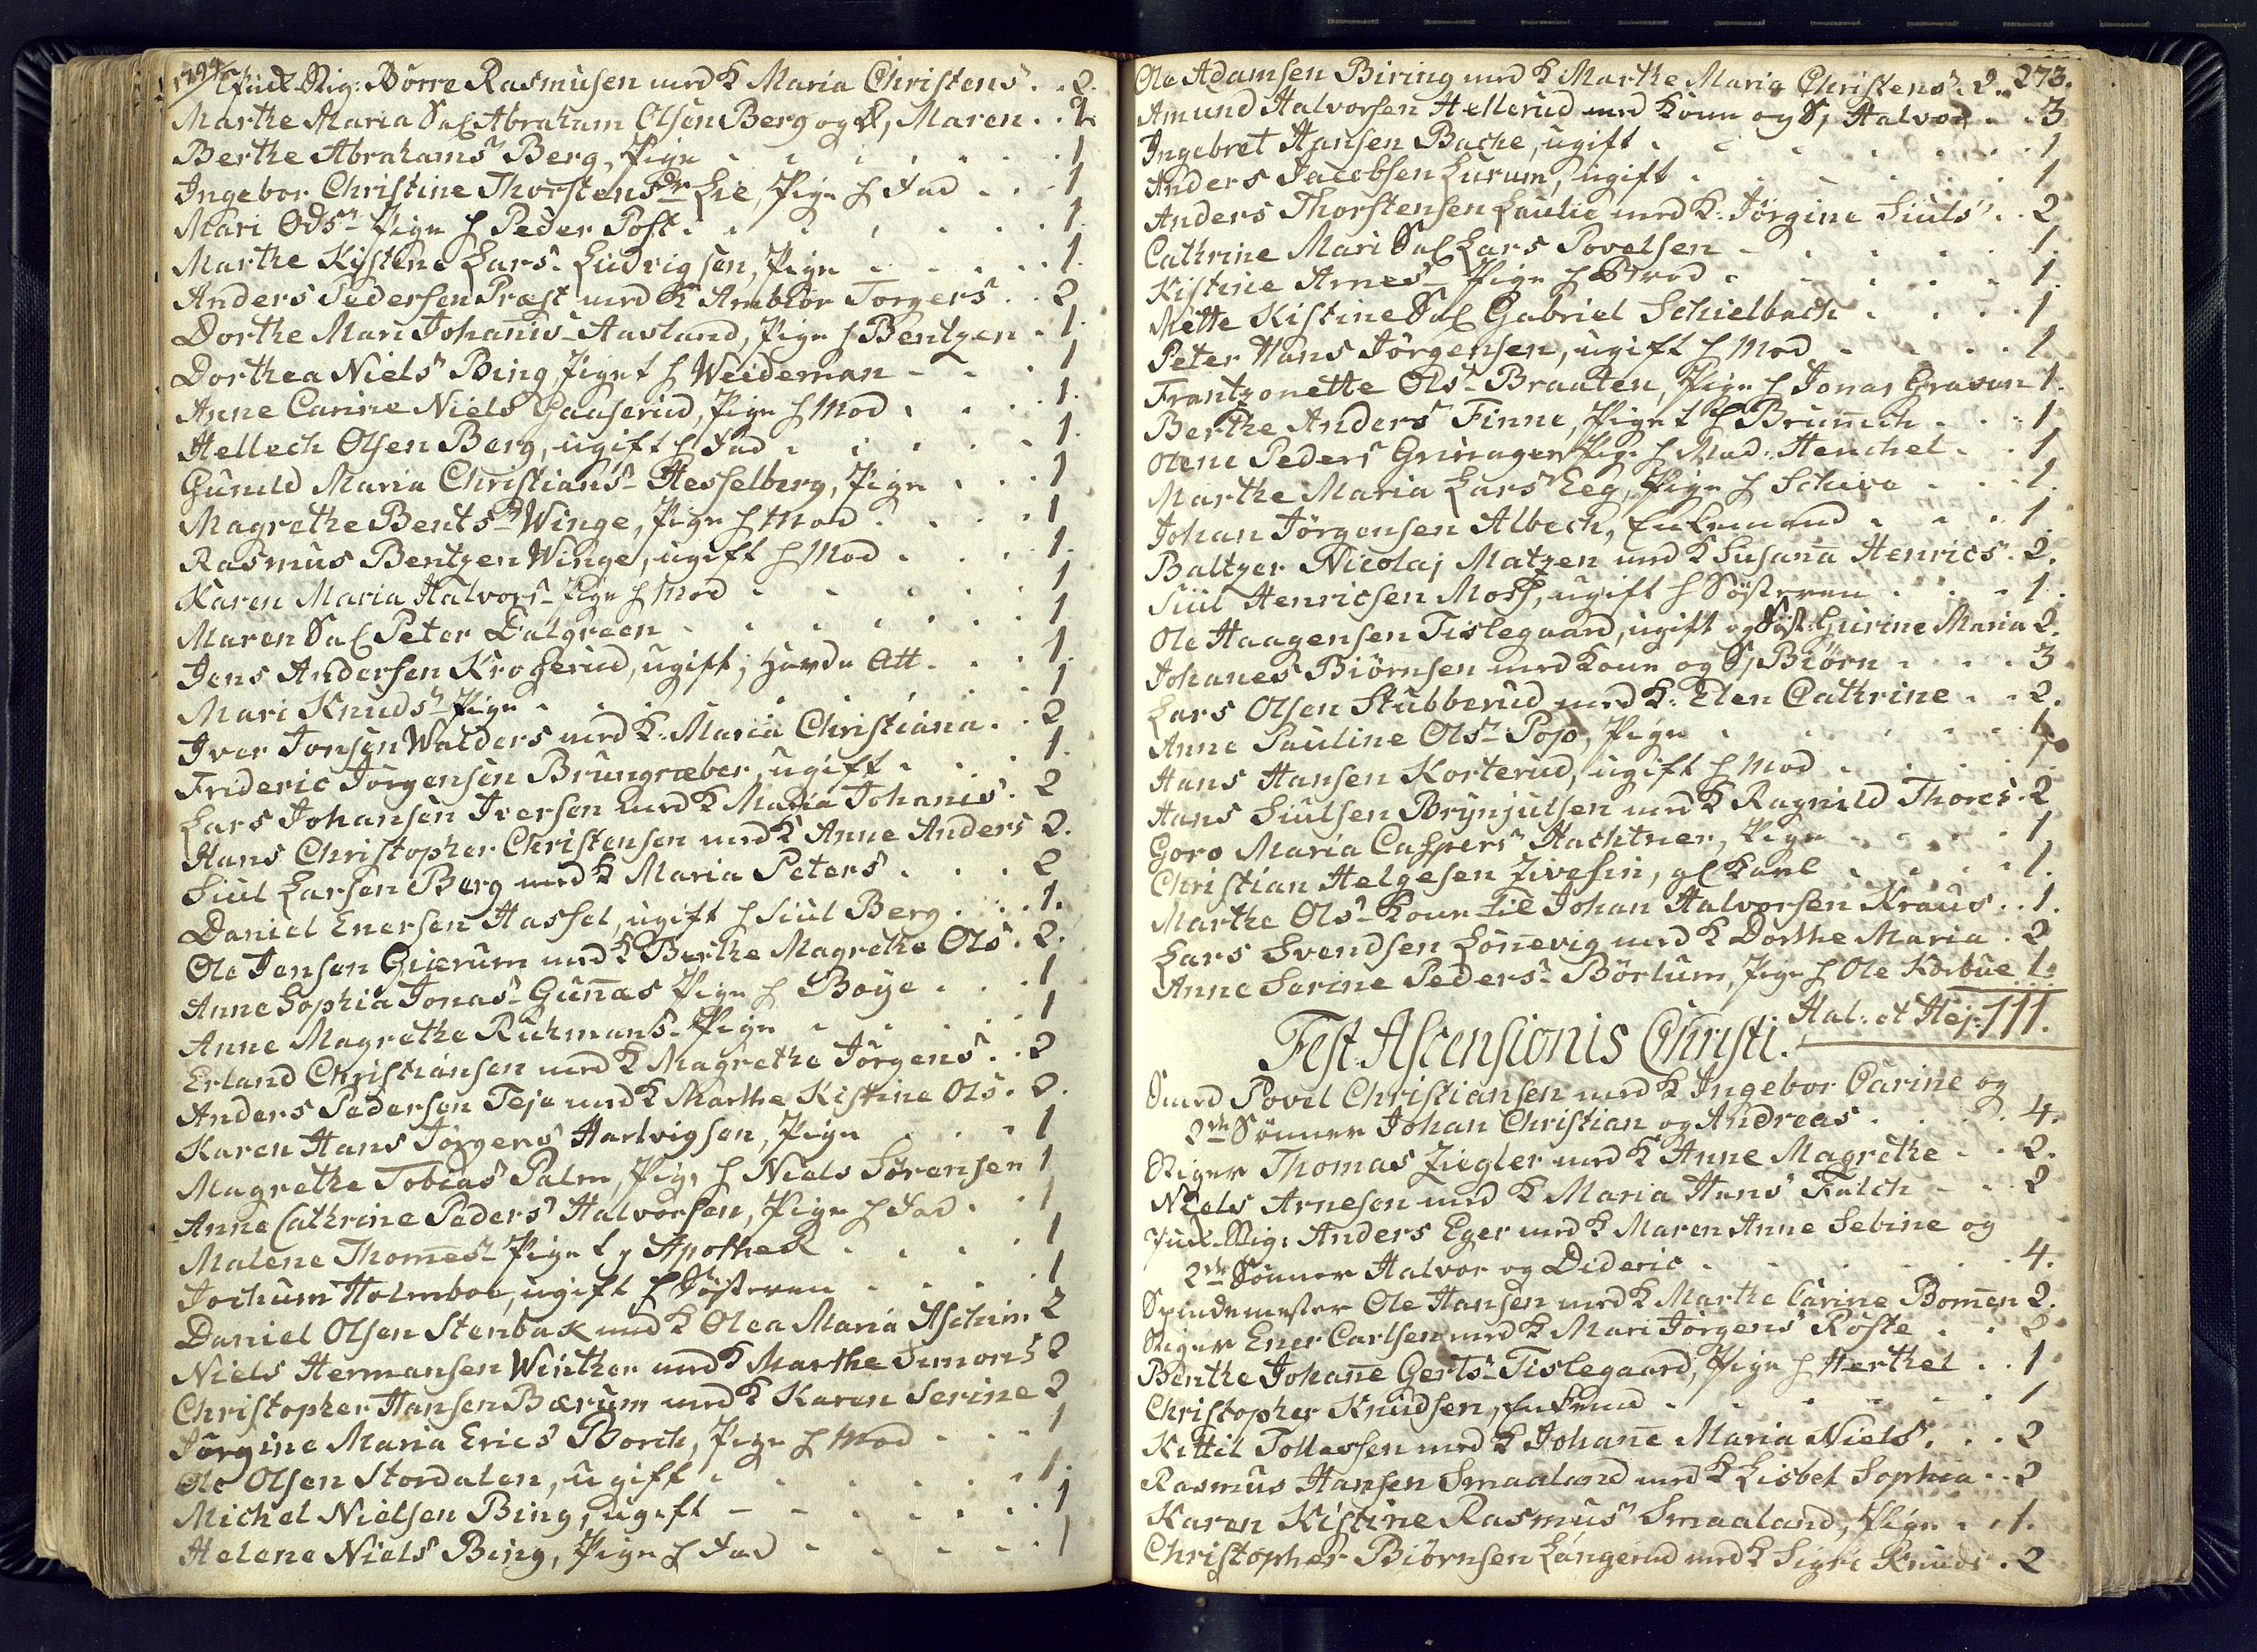 1794
Stig: Börre Rasmusen med K Maria Christens . . 2.
Marthe Maria Sal Abraham Olsen Berg og D, Maren . . 2
Berthe Abrahams Berg, Pige . . . . 1
Ingebor Christine Thorstensdr Lie, Pige h Fad . . 1
Mari Ols Pige h Peder Post . . . . 1.
Marthe Kistene Lars Ludvigsen, Pige . . . 1.
Anders Pedersen Præst med K Ambior Torgers . . 2
Dorthe Mari Johanis Aasland, Pige h Bentzen . 1.
Dorthea Niels Bing, Pige h Weideman . . 1
Anne Carine Niels Gauserud, Pige h Mod . . . 1.
Hellech Olsen Berg, ugift h Fad . . . 1.
Gunild Maria Christians Hesselberg, Pige . . . 1
Magrethe Bents Winge, Pige h Mod . . . 1
Rasmus Bentzen Winge, ugift h Mod . . . 1.
Karen Maria Halvors Pige h Mod . . . 1
Maren Sal Peter Dalgreen . . . . 1
Jens Andersen Krogerud, ugift, Att . . . 1.
Mari Knuds Pige . . . . 1
Iver Jonsen Walders med K. Maria Christiana . . 2
Frideric Jörgensen Brungræber, ugift . . . 1.
Lars Johansen Iversen med K Maria Johanis . 2
Hans Christopher Christensen med K Anne Anders 2.
Siul Larsen Berg med K Maria Peters . . . 2
Daniel Enersen Hassel, ugift h Siul Berg . . . 1.
Ole Jensen Giærum med K Berthe Magrethe Ols . 2.
Anne Sophia Jonas Gunnas Pige h Boye . . . 1
Anne Magrethe Ruhmans Pige . . . . 1
Erland Christiansen med K Magrethe Jörgens . . 2
Anders Pedersen Teje med K Marthe Kistine Ols . 2.
Karen Hans Jörgens Hartvigsen, Pige . . . 1
Magrethe Tobias Palm, Pige h Niels Sörensen 1
Anne Cathrine Peders Halvorsen, Pige h Fad . . 1
Malene Thomes Pige Apothek . . . 1
Jochum Holmboe, ugift h Söstren . . . 1
Daniel Olsen Stenbak med K Olea Maria Aschim 2
Niels Hermansen Winther med K Marthe Simons 2
Christopher Hansen Bærum med K Karen Serine 2
Jörgine Maria Erics Borch, Pige h Mod . . . 1
Ole Olsen Stordalen, ugift . . . . 1.
Michel Nielsen Bing, ugift . . . . 1
Helene Niels Bing, Pige h Fad . . . . 1
Ole Adamsen Biring med K Marthe Maria Christens 2. 273.
Amund Halvorsen Hellerud med Kone og S, Halvor . . 3
Ingebret Hansen Bache, ugift . . . . 1
Anders Jacobsen Lurum, ugift . . . . 1
Anders Thorstensen Laulie med K. Jörgine Siuls . . 2
Cathrine Mari Sal Lars Povelsen . . . . 1.
Kistine Arnes Pige h Brod . . . . 1.
Mette Kistine Sal Gabriel Schielbach . . . 1
Peter Hans Jörgensen, ugift h Mod . . . 1
Frantzonette Ols Braaten, Pige h Jonas Gravan 1.
Berthe Anders Finne, Pige h Brünnich . . . 1
Olene Peders Grinager Pige h Mad: Henchel . . 1
Marthe Maria Lars Eeg, Pige h Schive . . . 1.
Johan Jörgensen Albech, Enkemand . . . 1
Baltzer Nicolaj Matzen med K Susanna Henrics . 2.
Siul Henricsen Moss, ugift h Söstren . . . 1.
Ole Haagensen Tislegaard, ugift og Söst: Gurine Maria 2.
Johanes Biörnsen med Kone og S, Biörn . . . 3
Lars Olsen Stubberud med K. Elen Cathrine . . 2.
Anne Pauline Ols Pop, Pige . . . . 1
Hans Hansen Korterud, ugift h Mod . . . 1
Hans Siulsen Brynjulsen med K Ragnild Thores . 2
Goro Maria Caspers Hachtner, Pige . . . 1
Christian Helgesen Zivesin, gl Karl . . . 1.
Marthe Ols Kone til Johan Halvorsen Kraus . . 1.
Lars Svendsen Lönnevig med K Dorthe Maria . 2
Anne Serine Peders Börlum, Pige h Ole Korbue 1.
Hal: et Hej: 111.
Fest. Ascensionis Christi.
Smed Povel Christiansen med K Ingebor Carine og
2de Sönner Johan Christian og Andreas . . . 4.
Stiger Thomas Ziegler med K Anne Magrethe . . 2.
Niels Arnesen med K Maria Hans Falch . . 2
Stig: Anders Eger med K Maren Anne Sebine og
2de Sönner Halvor og Dideric . . . . 4.
Spindemester Ole Hansen med K Marthe Carine Bommen 2.
Stiger Ener Carlsen med K Mari Jörgens Röste . . 2
Benthe Johanne Gerts Tislegaard, Pige h Herthel . . 1
Christopher Knudsen, Enkemd . . . . 1
Kittil Tollessen med K Johanne Maria Niels . . 2
Rasmus Hansen Smaaland med K Lisbet Sophia . . 2
Karen Kistine Rasmus Smaaland, Pige . . 1.
Christopher Biörnsen Langerud med K Sigri Knuds . 2